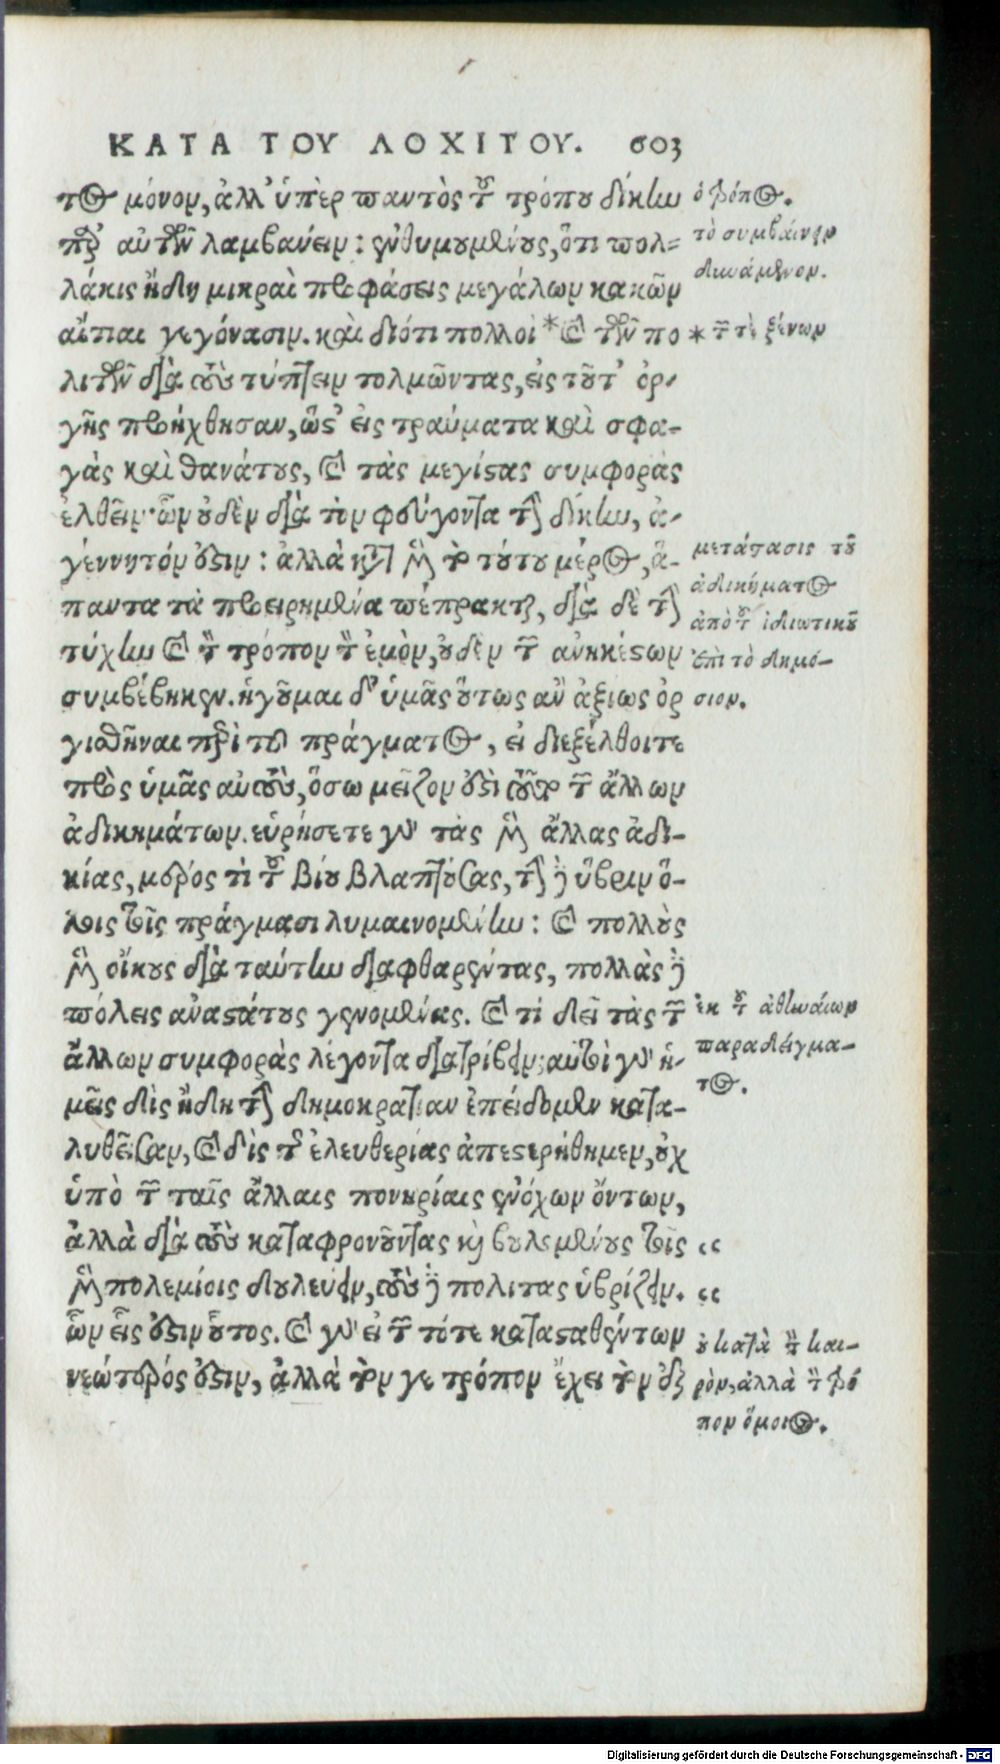 ΚΑΤΑ ΤΟΥ ΛΟΧΙΤΟΥ. 603
τος μόνον, ἀλλ' ὑπὲρ παντὸς τοῦ τρόπου δίκην
παρ' αὐτῶν λαμβάνειν: ἐνθυμουμένους, ὅτι πολ=
λάκις ἤδη μικραὶ προφάσεις μεγάλων κακῶν
αἴτιαι γεγόνασιν. καὶ διότι πολλοὶ * καὶ τῶν πο
λιτῶν διὰ τοὺς τύπτειν τολμῶντας, εἰς τοῦτ' ὀρ-
γῆς προήχθησαν, ὥστ' εἰς τραύματα καὶ σφα-
γὰς καὶ θανάτους, καὶ τὰς μεγίστας συμφορὰς
ἐλθεῖν· ὧν οὐδὲν διὰ τὸν φεύγοντα τὴν δίκην, ἀ-
γέννητόν ἐστιν: ἀλλὰ κατὰ μὲν τὸ τούτου μέρος, ἅ-
παντα τὰ προειρημένα πέπρακται, διὰ δὲ τὴν
τύχην καὶ τὸν τρόπον τὸν ἐμὸν, οὐδὲν τῶν ἀνηκέστων
συμβέβηκεν. ἡγοῦμαι δ' ὑμᾶς οὕτως ἂν ἀξίως ὀρ
γισθῆναι περὶ τοῦ πράγματος, εἰ διεξέλθοιτε
πρὸς ὑμᾶς αὐτοὺς, ὅσω μεῖζον ἐστὶ τοῦτο τῶν ἄλλων
ἀδικημάτων. εὑρήσετε γὰρ τὰς μὲν ἄλλας ἀδι-
κίας, μέρος τὶ τοῦ βίου βλαπτούσας, τὴν δὲ ὕβριν ὅ-
λοις τοῖς πράγμασι λυμαινομένην: καὶ πολλοὺς
μὲν οἴκους διὰ ταύτην διαφθαρέντας, πολλὰς δὲ
πόλεις ἀναστάτους γενομένας. καὶ τί δεῖ τὰς τῶν
ἄλλων συμφορὰς λέγοντα διατρίβειν; αὐτοὶ γὰρ ἡ-
μεῖς δὶς ἤδη τὴν δημοκρατίαν ἐπείδομεν κατα-
λυθεῖσαν, καὶ δὶς τῆς ἐλευθερίας ἀπεστερήθημεν, οὐχ
ὑπὸ τῶν ταῖς ἄλλαις πονηρίαις ἐνόχων ὄντων,
ἀλλὰ διὰ τοὺς καταφρονοῦντας καὶ βουλομένους τοῖς
μὲν πολεμίοις δουλεύειν, τοὺς δὲ πολιτας ὑβρίζειν.
ὧν εἷς ἐστιν οὗτος. καὶ γὰρ εἰ τῶν τότε κατασταθέντων
νεώτερός ἐστιν, ἀλλὰ τόν γε τρόπον ἔχει τὸν ἐξ
ὁ τρόπος.
τὸ συμβαίνειν
δυνάμενον.
* τῶν τὲ ξένων
μετάστασις τοῦ
ἀδικήματος
ἀπὸ τοῦ ἰδιωτικοῦ
ἐπὶ τὸ δημό-
σιον.
ἐκ τοῦ ἀθηναίων
παραδείγμα-
τος.
‹‹
‹‹
οὐ κατὰ τὸν και-
ρὸν, ἀλλὰ τὸν τρό
πον ὅμοιος.
Digitalisierung gefördert durch die Deutsche Forschungsgemeinschaft - DFG